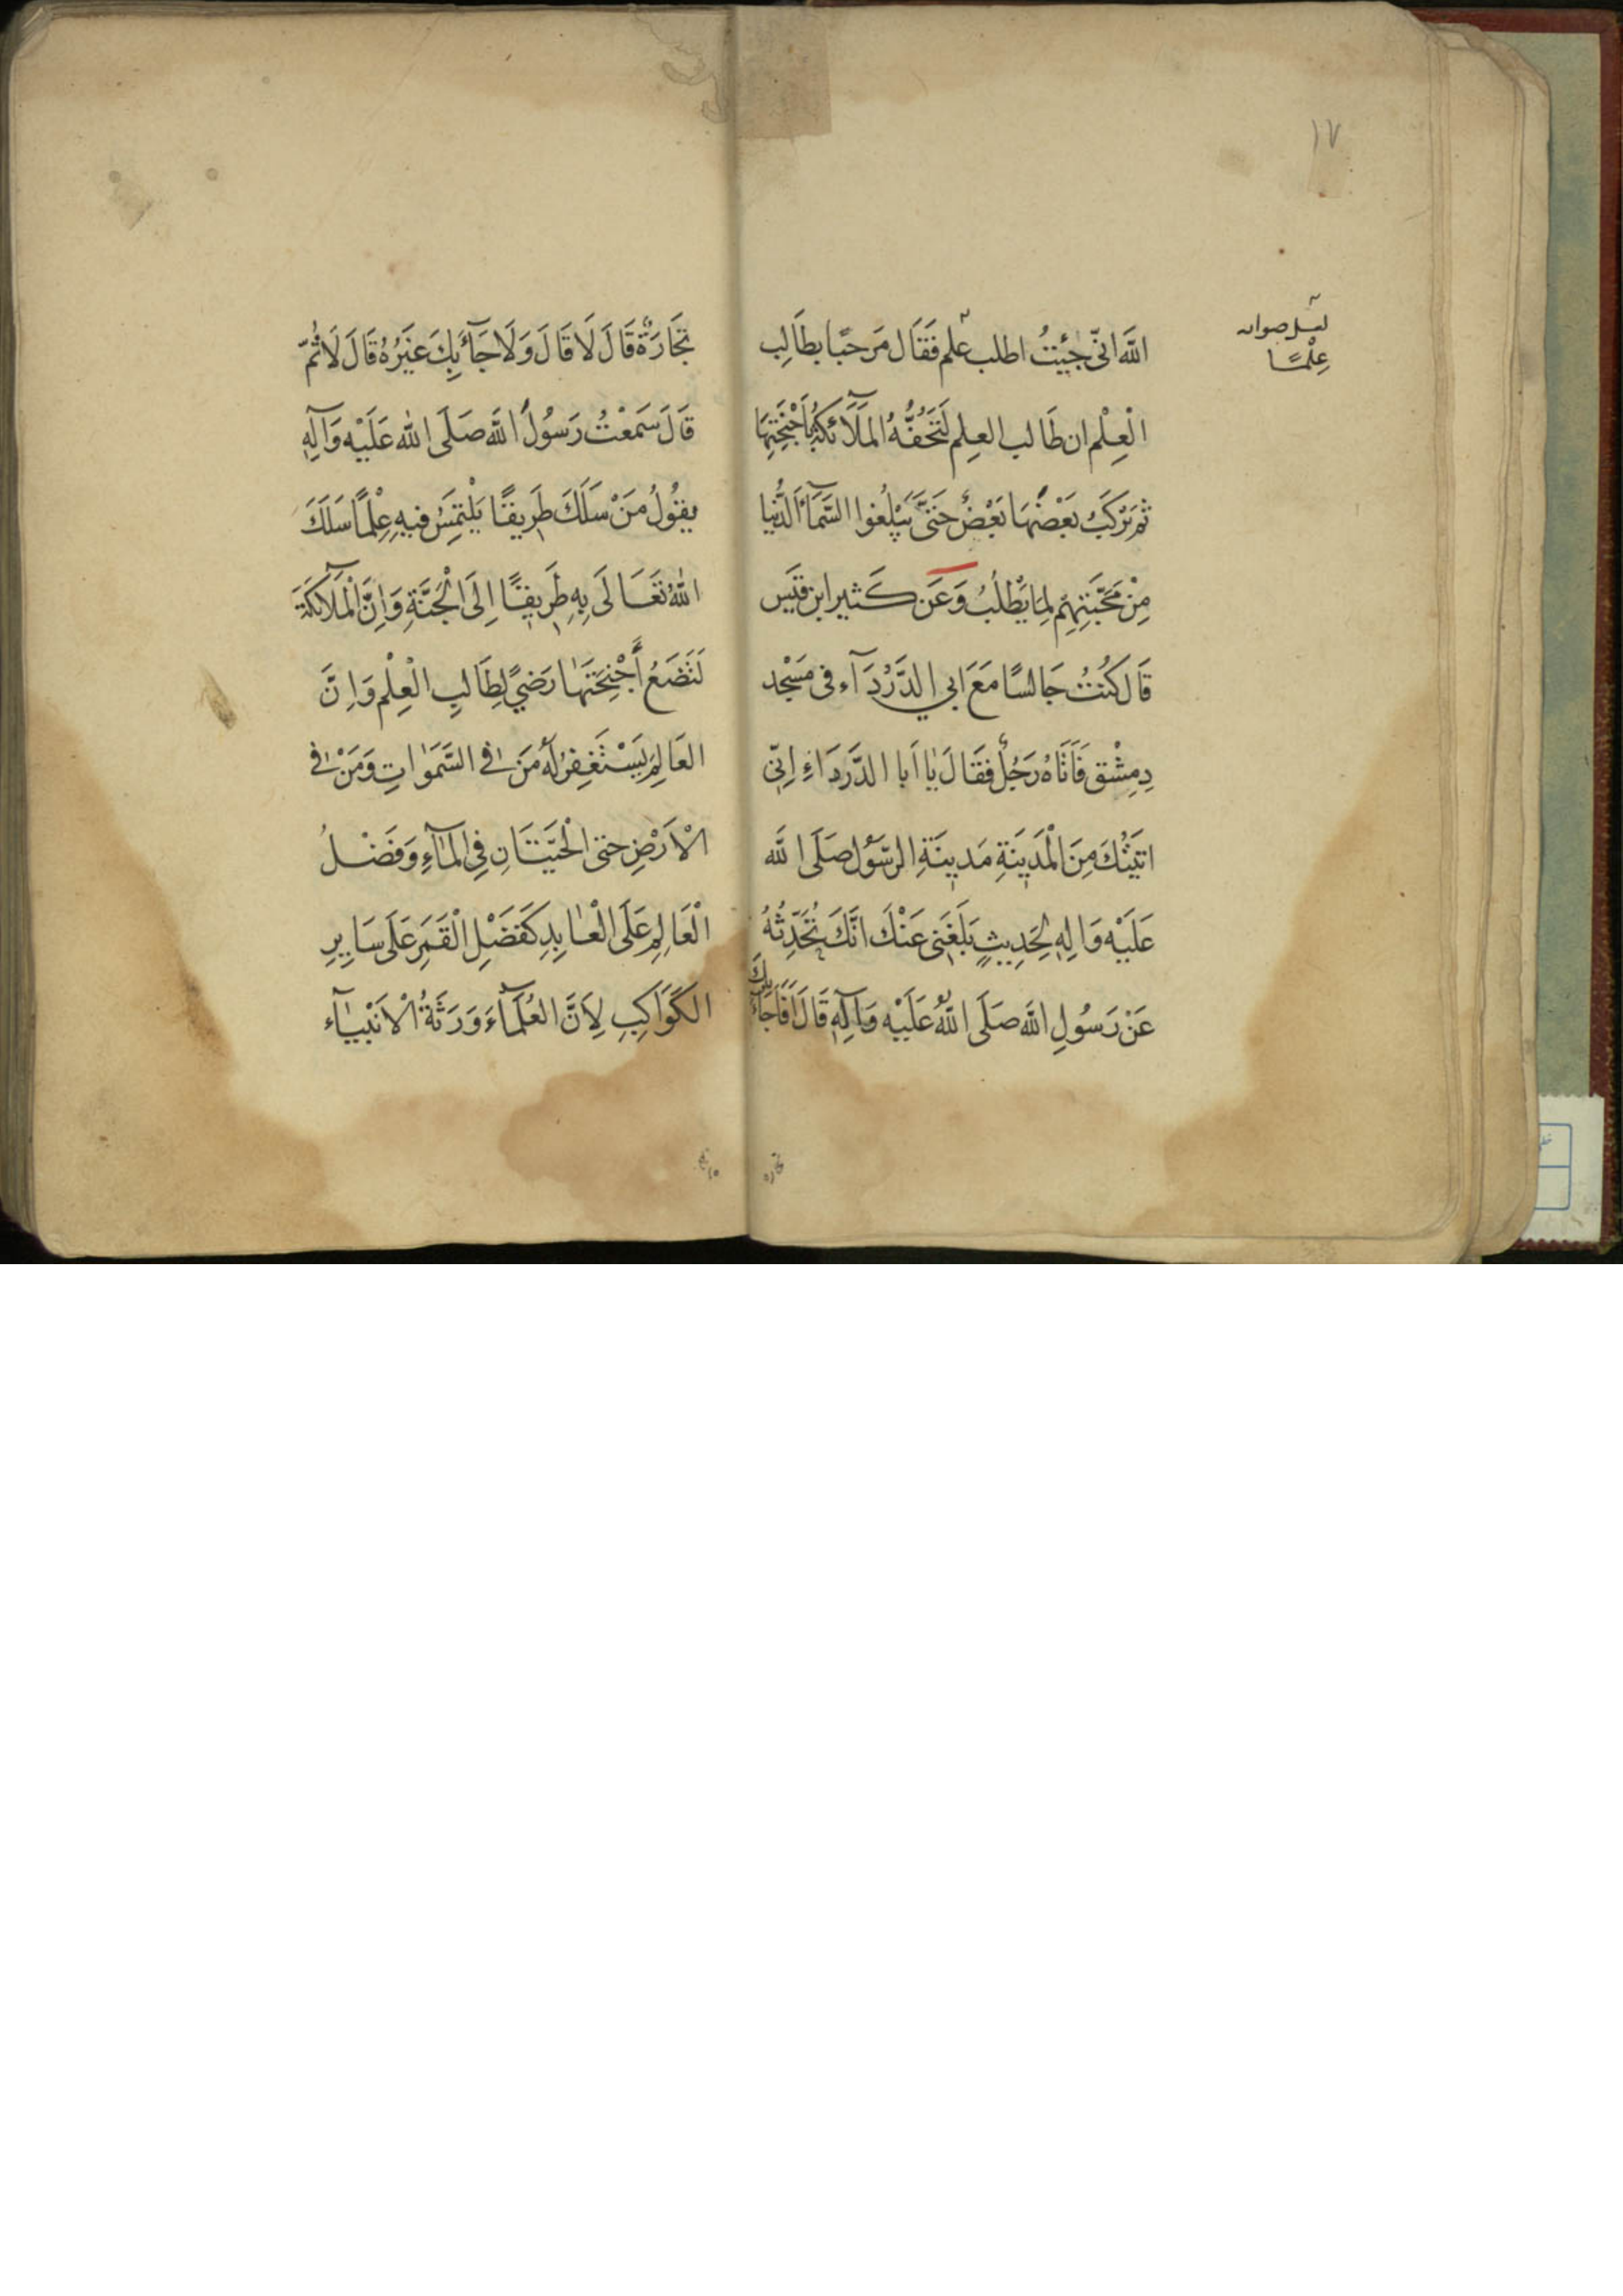 ١٧
علمًا
اللَّه انّى جئيتُ اطلب علم فَقَال مَرحبًا بطَالِب
الْعِلْم ان طَالب العِلم لَتَحُفُّهُ المَلَآئكةُ بُاَجْنِحَتِهَا
ثم يَركَبُ بَعْضُهَا بَعْضٌ حَتىَّ يَبْلِغُوا السَّمَآءَ الَّدُنيا
مِنْ مَحَبَّتِهِمِ لِمَا يَطْلُبُ وَعَن كَثيرابن قيَس
قَال كُنتُ جَالسًا مَعَ ابي الدَّرْدَآء فى مَسْجد
دِمِشْق فَاَتَاهُ رَجُلٌ فقَالَ يَا اَبا الدَّردَاءِ اِنّى
اتيَتُكَ مِنَ الْمَدِينَةِ مَدينَةِ الرسّوُل صَلَى اللَّه
عَلَيْه وَالِهِ لِحَدِيثٍ بَلَغَنى عَنْكَ انَّكَ تُحَدِّثُهُ
عَنْ رَسُولِ اللَّه صَلَى اللَّهُ عَلَيْه وَآلِهِ قَالَ اَفَاَجَآءَ بِكَ
تجاره
تِجَارَةٌ قَالَ لَا قَالَ وَلَا جَآءَ بِكَ غَيْرُهُ قَالَ لَا ثُمّ
قَالَ سَمعْتُ رَسُولُ اللَّه صَلَى اللّه عَلَيْه وَآلِهِ
يقوُلُ مَنْ سَلَكَ طَرِيقًا يَلْتمِسُ فيهِ عِلْمًا سَلَكَ
اللّهُ تَعَالَى بِهِ طَريقًا اِلَى الْجَنَّةِ وَاِنَّ الْمَلَآئكَةَ
لَتَضَعُ أَجْنِحَتَهَا رَضىً لِطَالبِ الْعِلْم وَاِنَّ
العَالِمَ يَسْتَغفِرُ لَهُ مَنَ فى السَّمَوَاتِ وَمَنْ فى
الْاَرْضِ حتى الْحيَتَانِ فِى الْمَآءِ وَفَضْلُ
الْعَالِمِ عَلَى الْعَابِدِ كَفَضْلِ الْقَمَرِ عَلَى سَايِرِ
الكَوَاكِبِ لِاَنَّ العُلَمَآءَ وَرَثَةُ الْاَنْبيَآء